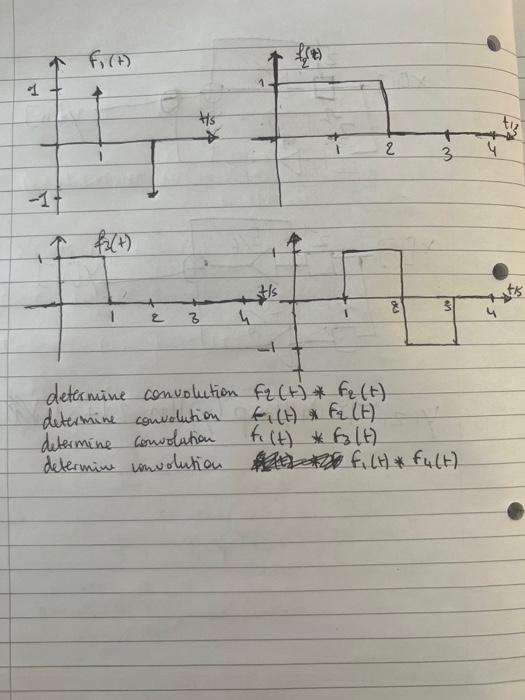 f₁(t)
1
t/s
1
-1
f₂(t)
1
t/s
1 2 3 4
f₃(t)
1
t/s
1 2 3 4
1
t/s
1 2 3 4
-1
determine convolution f₂(t) * f₂(t)
determine convolution f₁(t) * f₂(t)
determine convolution f₁(t) * f₃(t)
determine convolution f₁(t) * f₄(t)